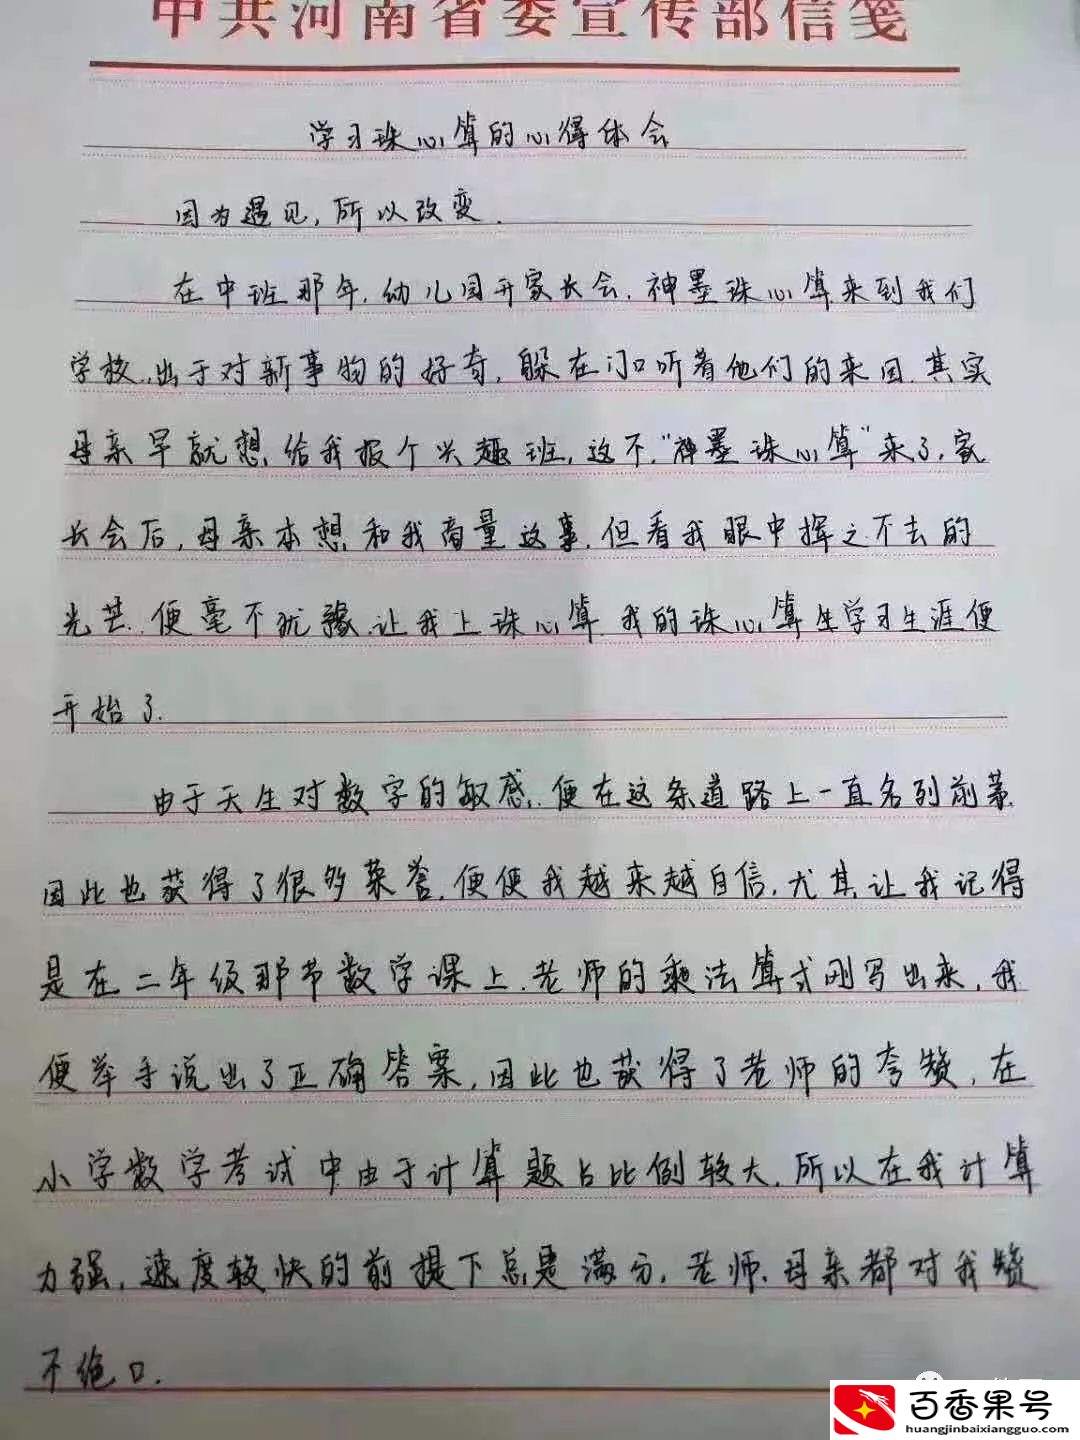 中共河南省委宣传部信笺
学习珠心算的心得体会
因为遇见,所以改变.
在中班那年,幼儿园开家长会,神墨珠心算来到我们
学校,出于对新事物的好奇,躲在门口听着他们的来回.其实
母亲早就想给我报个兴趣班,这不,"神墨珠心算"来了,家
长会后,母亲本想和我商量这事,但看我眼中挥之不去的
光芒,便毫不犹豫让我上珠心算.我的珠心算生学习生涯便
开始了.
由于天生对数字的敏感,便在这条道路上一直名列前茅.
因此也获得了很多荣誉,便使我越来越自信,尤其让我记得
是在二年级那节数学课上,老师的乘法算式刚写出来,我
便举手说出了正确答案,因此也获得了老师的夸赞,在
小学数学考试中由于计算题占比例较大,所以在我计算
力强,速度较快的前提下总是满分,老师,母亲都对我赞
不绝口.
百香果号
huangjinbaixiangguo.com